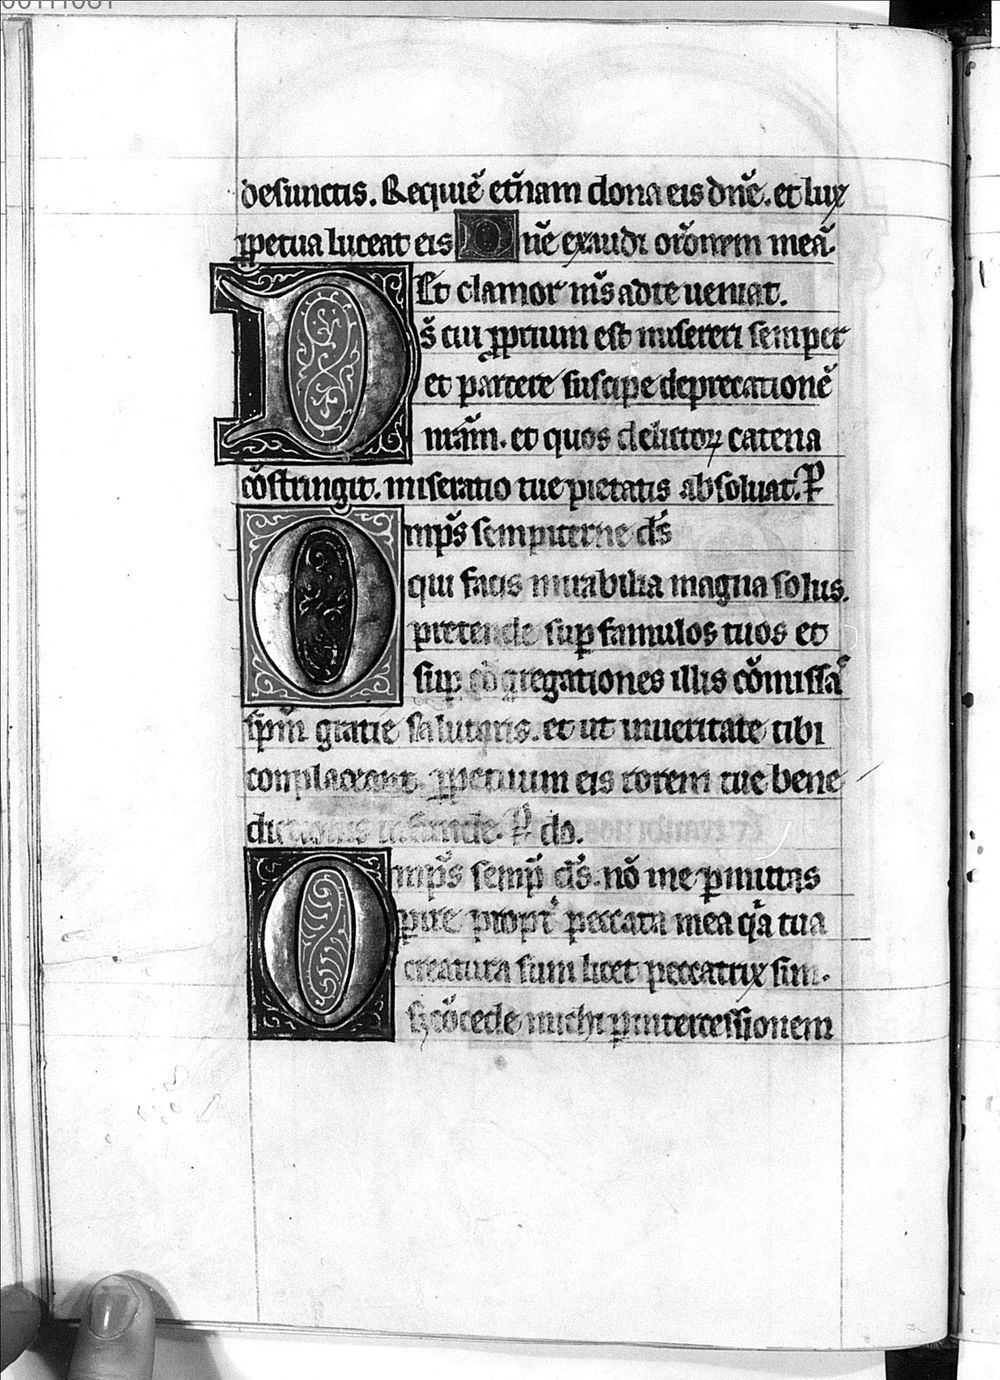 defunctis. Requiē et̄nam dona eis dn̄e. et lux
ꝑpetua luceat eis Dn̄e exaudi orōnem meā.
Et clamor m̄s ad te ueniat.
Ds̄ cui ꝓprium est misereri semper
et parcere suscipe deprecationē
nr̄am. et quos delictoꝝ catena
cōstringit. miseratio tue pietatis absoluat. P̄
Omp̄s sempiterne ds̄
qui facis mirabilia magna solus.
pretende suꝑ famulos tuos et
suꝑ cōgregationes illis cōmissā
sp̄m gratie salutaris. et ut inueritate tibi
complaceant. ꝑpetuum eis rorem tue bene
dictionis infunde. P̄ do.
Omp̄s semp̄ ds̄. nō me ꝑmittas
ꝑire propt̄ peccata mea q̄a tua
creatura sum licet peccatrix sim.
sꝫ cōcede michi ꝑ intercessionem